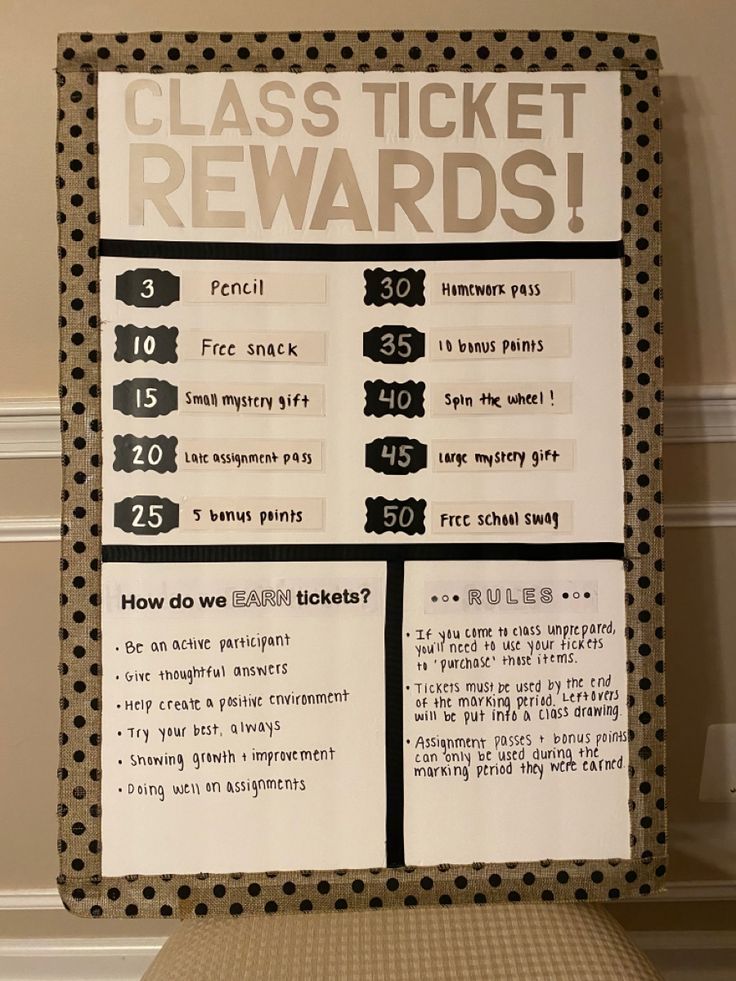 CLASS TICKET
REWARDS!
3 Pencil
10 Free snack
15 Small mystery gift
20 Late assignment pass
25 5 bonus points
30 Homework pass
35 10 bonus points
40 Spin the wheel!
45 Large mystery gift
50 Free school swag
How do we EARN tickets?
• Be an active participant
• Give thoughtful answers
• Help create a positive environment
• Try your best, always
• Showing growth + improvement
• Doing well on assignments
RULES
• If you come to class unprepared,
you'll need to use your tickets
to 'purchase' those items.
• Tickets must be used by the end
of the marking period. Leftovers
will be put into a class drawing.
• Assignment passes + bonus points
can only be used during the
marking period they were earned.